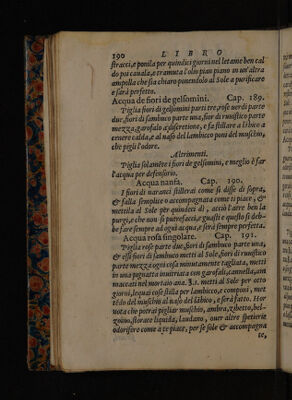 190 LIBRO
stracci, e ponila per quindici giorni nel letame ben cal
do poi cauala, e tramuta l'olio pian piano in un'altra
ampolla che sia chiara ponendolo al Sole a purificare
e sarà perfetto.
Acqua de fiori de gelsomini. Cap. 189.
Piglia fiori di gelsomini parti tre, rose uerdi parte
due, fiori di sambuco parte una, fior di ruuistico parte
mezza, garofalo a discretione, e fa stillare a lábico a
cenere calda, e al naso del lambicco poni del muschio,
che pigli l'odore.
Altrimenti.
Piglia solaméte i fiori de gelsomini, e meglio è far
l'acqua per defensorio.
Acqua nanfa. Cap. 190.
I fiori di naranci stillerai come si disse di sopra,
& falla semplice o accompagnata come ti piace, &
mettila al Sole per quindeci dì, acciò l'aere ben la
purgi, e che non si putrefacci, e guasti e questo si deb-
be fare sempre ad ogni acqua, e serà sempre perfetta.
Acqua rosa singolare. Cap. 191.
Piglia rose parte due, fiori di sambuco parte una,
& essi fiori di sambuco metti al Sole, fiori di ruuistico
parte mezza ogni cosa minutamente tagliata, metti
in una pignatta inuetriata con garofali, cannella, am
maccati nel mortaio ana. ʒ.2. metti al Sole per otto
giorni, lequai cose stilla per lambicco, e componi, met
tédo del muschio al naso del lábico, e serà fatto. Hor
nota che potrai pigliar muschio, ambra, zibetto, bel-
zoino, storace liquida, laudano, ouer altre specierie
odorifere come a te piace, per se sole & accompagna
te,